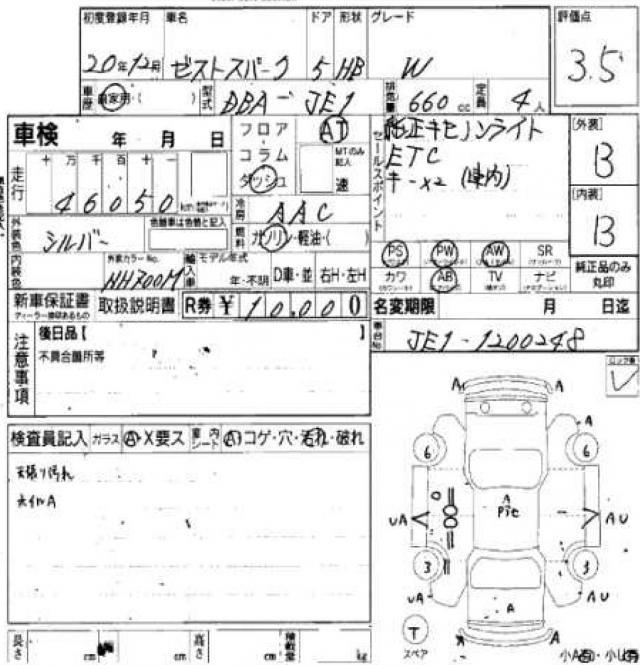 初度登録年月 車名 ドア 形状 グレード 評価点
20年12月 ゼストスパーク 5 HB W 3.5
車歴 自家用・( ) 型式 DBA-JE1 排気量 660 cc 定員 4人
車検 年 月 日
フロア AT
コラム MTのみ記入
ダッシュ 速
セールスポイント
純正キセノンライト
ETC
キーx2 (車内)
[外装] B
[内装] B
走行 十 万 千 百 十 一
46050
冷房 AAC
燃料 ガソリン・軽油・( )
外装色 シルバー 色替車は色替と記入
内装色 外装カラーNo. NH700M
輸入車 モデル年式 年・不明 D車・並 右H・左H
PS PW AW SR
カワ AB TV ナビ
純正品のみ丸印
新車保証書 取扱説明書 R券 ¥ 10,000
ディーラー捺印あるもの
名変期限 月 日迄
車台No JE1-1200248
注意事項
後日品【 】
不具合箇所等
検査員記入 ガラス A・X要ス 室内シート A コゲ・穴・汚れ・破れ
天張り汚れ
ホイルA
A A
A
6 6
UA A P3セ AU
3 3
UA AU
A
T
スペア
A A
長さ cm cm 高さ cm 積載量 kg